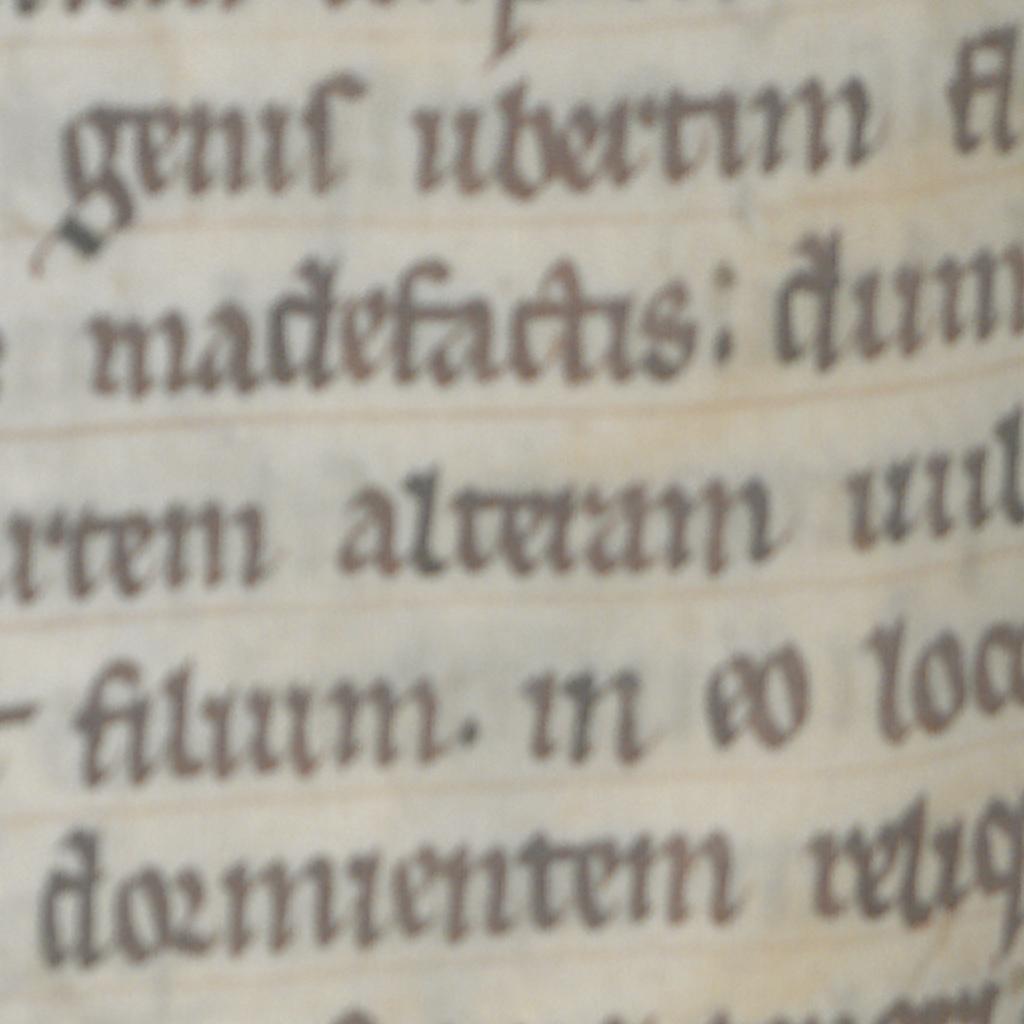 geniſ ubertim fl
madefactis: dum
rtem alteram uul
filium. in eo loca
dormientem reliq